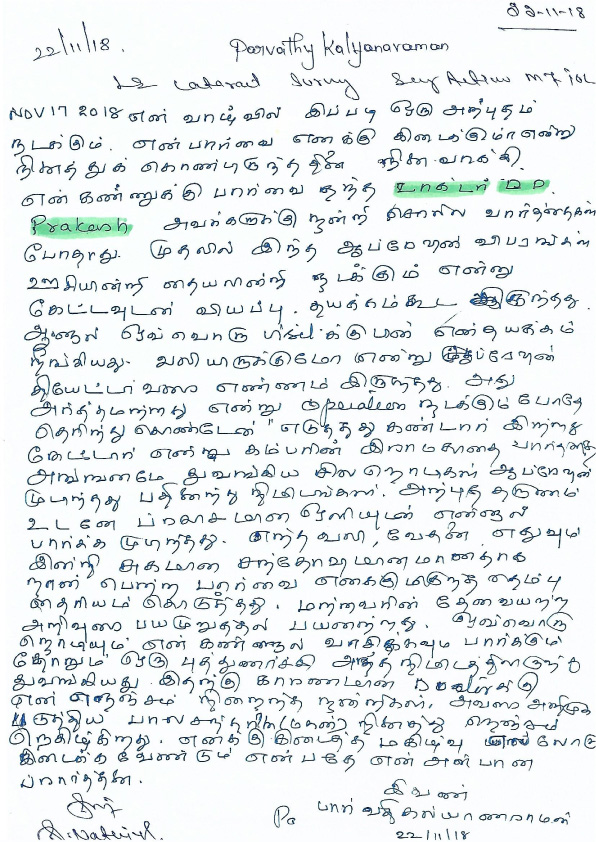 22-11-18
22/11/18. Parvathy Kalyanaraman
NOV 17 2018 என் வாழ்வில் இப்படி ஒரு அற்புதம்
நடக்கும். என் பார்வை எனக்கு கிடைக்குமா என்று
நினைத்துக் கொண்டிருந்த தினம்
என் கண்ணுக்கு பார்வை தந்த டாக்டர் DD
Prakash அவர்களுக்கு நன்றி சொல்ல வார்த்தைகள்
போதாது. முதலில் இந்த ஆப்ரேஷன் விபரங்கள்
ஊசியின்றி தையலின்றி நடக்கும் என்று
கேட்டவுடன் வியப்பு. தயக்கம்கூட இருந்தது.
ஆனால் ஒவ்வொரு க்குமுன் என் தயக்கம்
நீங்கியது. வலியிருக்குமோ என்று ஆப்ரேஷன்
தியேட்டர் வரை எண்ணம் இருந்தது. அது
அர்த்தமற்றது என்று Operation நடக்கும் போதே
தெரிந்து கொண்டேன் "எடுத்தது கண்டார் இற்றது
கேட்டார் என்று கம்பரின் இராமகாதை வார்த்தை
அங்ஙனமே துவங்கிய சில நொடிகள் ஆப்ரேஷன்
முடிந்தது பதினைந்து நிமிடங்கள். அற்புத தருணம்
உடனே ப்ரகாசமான ஒளியுடன் என்னால்
பார்க்க முடிந்தது. எந்த வலி, வேதனை எதுவும்
இன்றி சுகமான சந்தோஷமானமானதாக
நான் பெற்ற பார்வை எனக்கு மிகுந்த தெம்பு
தைரியம் கொடுத்தது. மற்றவரின் தேவையற்ற
அறிவுரை பயமுறுத்தல் பயனற்றது. ஒவ்வொரு
நொடியும் என் கண்ணால் வாசிக்கவும் பார்க்கும்
தோறும் ஒரு புத்துணர்ச்சி அந்த நிமிடத்திலிருந்து
துவங்கியது. இதற்கு காரணமான Doctorக்கு
என் நெஞ்சம் நிறைந்த நன்றிகள். அவரை அறிமுக
படுத்திய பாலசந்தரின்(மகன்) நினைத்து நெஞ்சம்
நெகிழ்கிறது. எனக்கு கிடைத்த மகிழ்வு எல்லோருக்கும்
கிடைக்க வேண்டும் என்பதே என் அன்பான
ப்ரார்த்தனை.
இவண்
பார்வதி கல்யாணராமன்
22/11/18